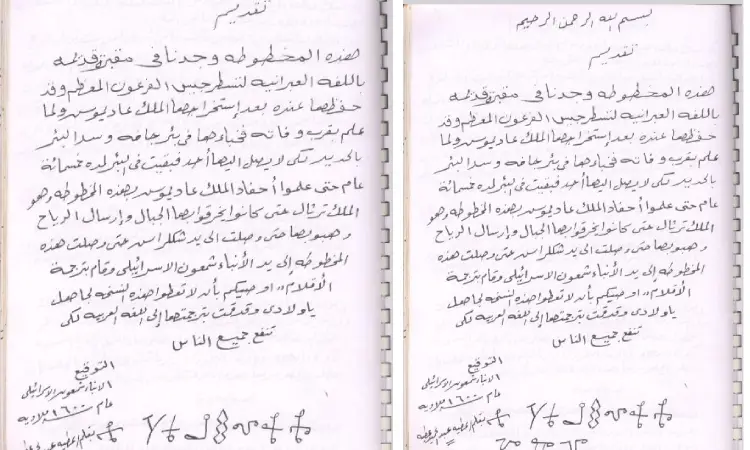 تقديم
هذه المخطوطه وجدنا في مقبرة قديمه
باللغه العبرانيه لتسطر حبس الفرعون المعظم وقد
حفظها عنده بعد إستخراجها الملك عاديوس ولما
علم بقرب وفاته فخباءها في بئر جافه وسد البئر
بالحديد لكى لا يصل اليها أحد فبقيت فى البئر لمده خمسمائة
عام حتى علموا أحفاد الملك عاديوس بهذه المخطوطه وهو
الملك ترتال حتى كانوا يخرقوا بها الجبال وإرسال الرياح
وهبوبها حتى وصلت الى يد شكلراس حتى وصلت هذه
المخطوطه إلى يد الأنباء شمعون الاسرائيلى وقام بترجمة
الأقلام،، اوصيتكم بأن لا تعطوا هذه النسخه لجاهل
ياولادى وقد قمت بترجمتها إلى اللغه العربيه لكى
تنفع جميع الناس
التوقيع
الانباء شمعون الاسرائيلى
عام ١٦٠٠ ميلاديه
بسم الله الرحمن الرحيم
تقديم
هذه المخطوطه وجدنا في مقبرة قديمه
باللغه العبرانيه لتسطر حبس الفرعون المعظم وقد
حفظها عنده بعد إستخراجها الملك عاديوس ولما
علم بقرب وفاته فخباءها في بئر جافه وسد البئر
بالحديد لكى لا يصل اليها أحد فبقيت فى البئر لمده خمسمائة
عام حتى علموا أحفاد الملك عاديوس بهذه المخطوطه وهو
الملك ترتال حتى كانوا يخرقوا بها الجبال وإرسال الرياح
وهبوبها حتى وصلت الى يد شكلراس حتى وصلت هذه
المخطوطه إلى يد الأنباء شمعون الاسرائيلى وقام بترجمة
الأقلام،، اوصيتكم بأن لا تعطوا هذه النسخه لجاهل
ياولادى وقد قمت بترجمتها إلى اللغه العربيه لكى
تنفع جميع الناس
التوقيع
الانباء شمعون الاسرائيلى
عام ١٦٠٠ ميلاديه